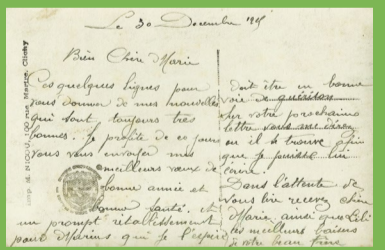 Le 30 Decembre 191
Bien Chère Marie
Ces quelques lignes pour
vous donner de mes nouvelles
qui sont toujours très
bonnes. Je profite de ce jour
vous envoyer mes
meilleurs vœux de
bonne année et
bonne santé, et
un prompt rétablissement
pour Marius qui je l'espère
doit être en bonne
voie de guérison
sur votre prochaine
lettre vous me direz
ou il se trouve afin
que je puisse lui
écrire.
Dans l'attente de
vous lire recevez chère
Marie ainsi que
les meilleurs baisers
de votre beau frère
Imp. 100 rue Martre, Clichy